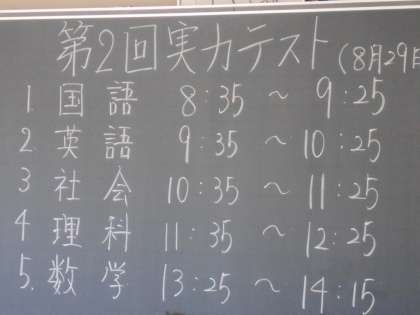 第2回実力テスト(8月29日
1 国語 8:35 ~ 9:25
2. 英語 9:35 ~ 10:25
3 社会 10:35 ~ 11:25
4 理科 11:35 ~ 12:25
5. 数学 13:25 ~ 14:15